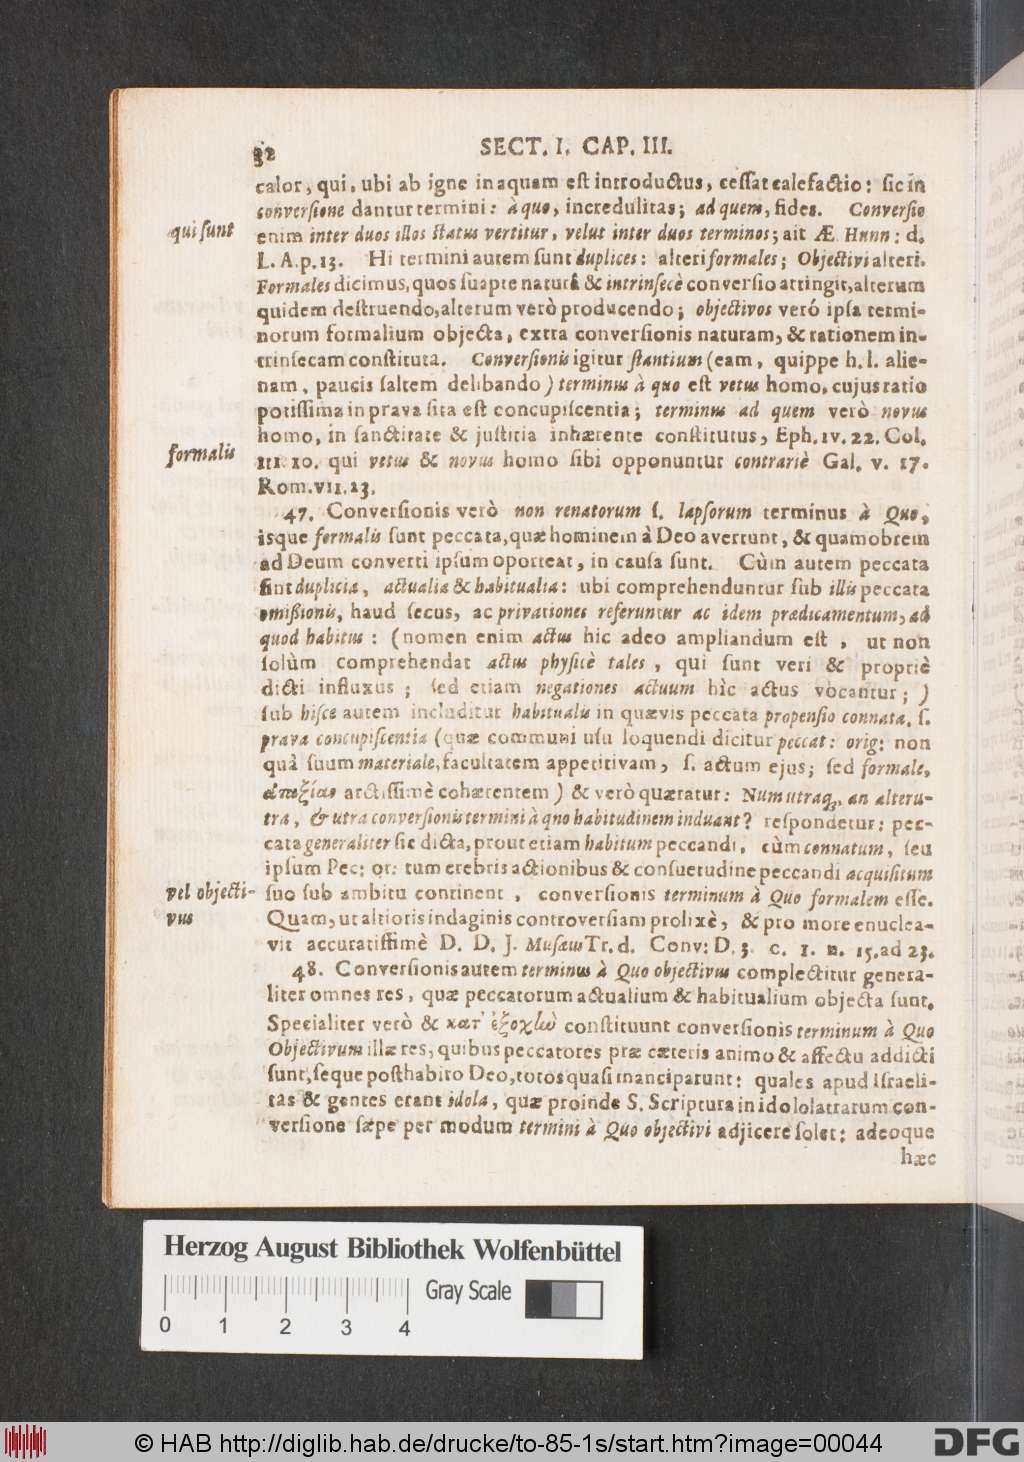 32 SECT. I. CAP. III.
calor, qui, ubi ab igne in aquam est introductus, cessat calefactio: sic in
conversione dantur termini: à quo, incredulitas; ad quem, fides. Conversio
qui sunt
enim inter duos illos status vertitur, velut inter duos terminos; ait Æ. Hunn: d.
L. A. p. 13. Hi termini autem sunt duplices: alteri formales; Objectivi alteri.
Formales dicimus, quos suapte naturâ & intrinsecè conversio attingit, alterum
quidem destruendo, alterum verò producendo; objectivos veró ipsa termi-
norum formalium objecta, extra conversionis naturam, & rationem in-
trinsecam constituta. Conversionis igitur stantium (eam, quippe h. l. alie-
nam, paucis saltem delibando) terminus à quo est vetus homo, cujus ratio
potissima in prava sita est concupiscentia; terminus ad quem verò novus
homo, in sanctitate & justitia inhærente constitutus, Eph. IV. 22. Col.
formalis
III. 10. qui vetus & novus homo sibi opponuntur contrariè Gal. V. 17.
Rom. VII. 23.
47. Conversionis verò non renatorum s. lapsorum terminus à Quo,
isque formalis sunt peccata, quæ hominem à Deo avertunt, & quamobrem
ad Deum converti ipsum oporteat, in causa sunt. Cùm autem peccata
sint duplicia, actualia & habitualia: ubi comprehenduntur sub illis peccata
omißionis, haud secus, ac privationes referuntur ac idem prædicamentum, ad
quod habitus: (nomen enim actus hic adeo ampliandum est, ut non
solùm comprehendat actus physicè tales, qui sunt veri & propriè
dicti influxus; sed etiam negationes actuum hìc actus vocantur;)
sub hisce autem includitur habitualis in quævis peccata propensio connata, s.
prava concupiscentia (quæ communi usu loquendi dicitur peccat: orig: non
quà suum materiale, facultatem appetitivam, s. actum ejus; sed formale,
ἀταξίαν arctissimè cohærentem) & verò quæratur: Num utraq;, an alteru-
tra, & utra conversionis termini à quo habitudinem induant? respondetur: pec-
cata generaliter sic dicta, prout etiam habitum peccandi, cùm connatum, seu
ipsum Pec: or: tum crebris actionibus & consuetudine peccandi acquisitum
vel objecti-
suo sub ambitu continent, conversionis terminum à Quo formalem esse.
vus
Quam, ut altioris indaginis controversiam prolixè, & pro more enuclea-
vit accuratissimè D. D. J. Musæus Tr. d. Conv: D. 3. c. 1. n. 15. ad 23.
48. Conversionis autem terminus à Quo objectivus complectitur genera-
liter omnes res, quæ peccatorum actualium & habitualium objecta sunt.
Specialiter verò & κατ' ἐξοχὴν constituunt conversionis terminum à Quo
Objectivum illæ res, quibus peccatores præ cæteris animo & affectu addicti
sunt, seque posthabito Deo, totos quasi manciparunt: quales apud Israeli-
tas & gentes erant idola, quæ proinde S. Scriptura in idololatrarum con-
versione sæpe per modum termini à Quo objectivi adjicere solet: adeoque
hæc
Herzog August Bibliothek Wolfenbüttel
Gray Scale
0 1 2 3 4
© HAB http://diglib.hab.de/drucke/to-85-1s/start.htm?image=00044
DFG